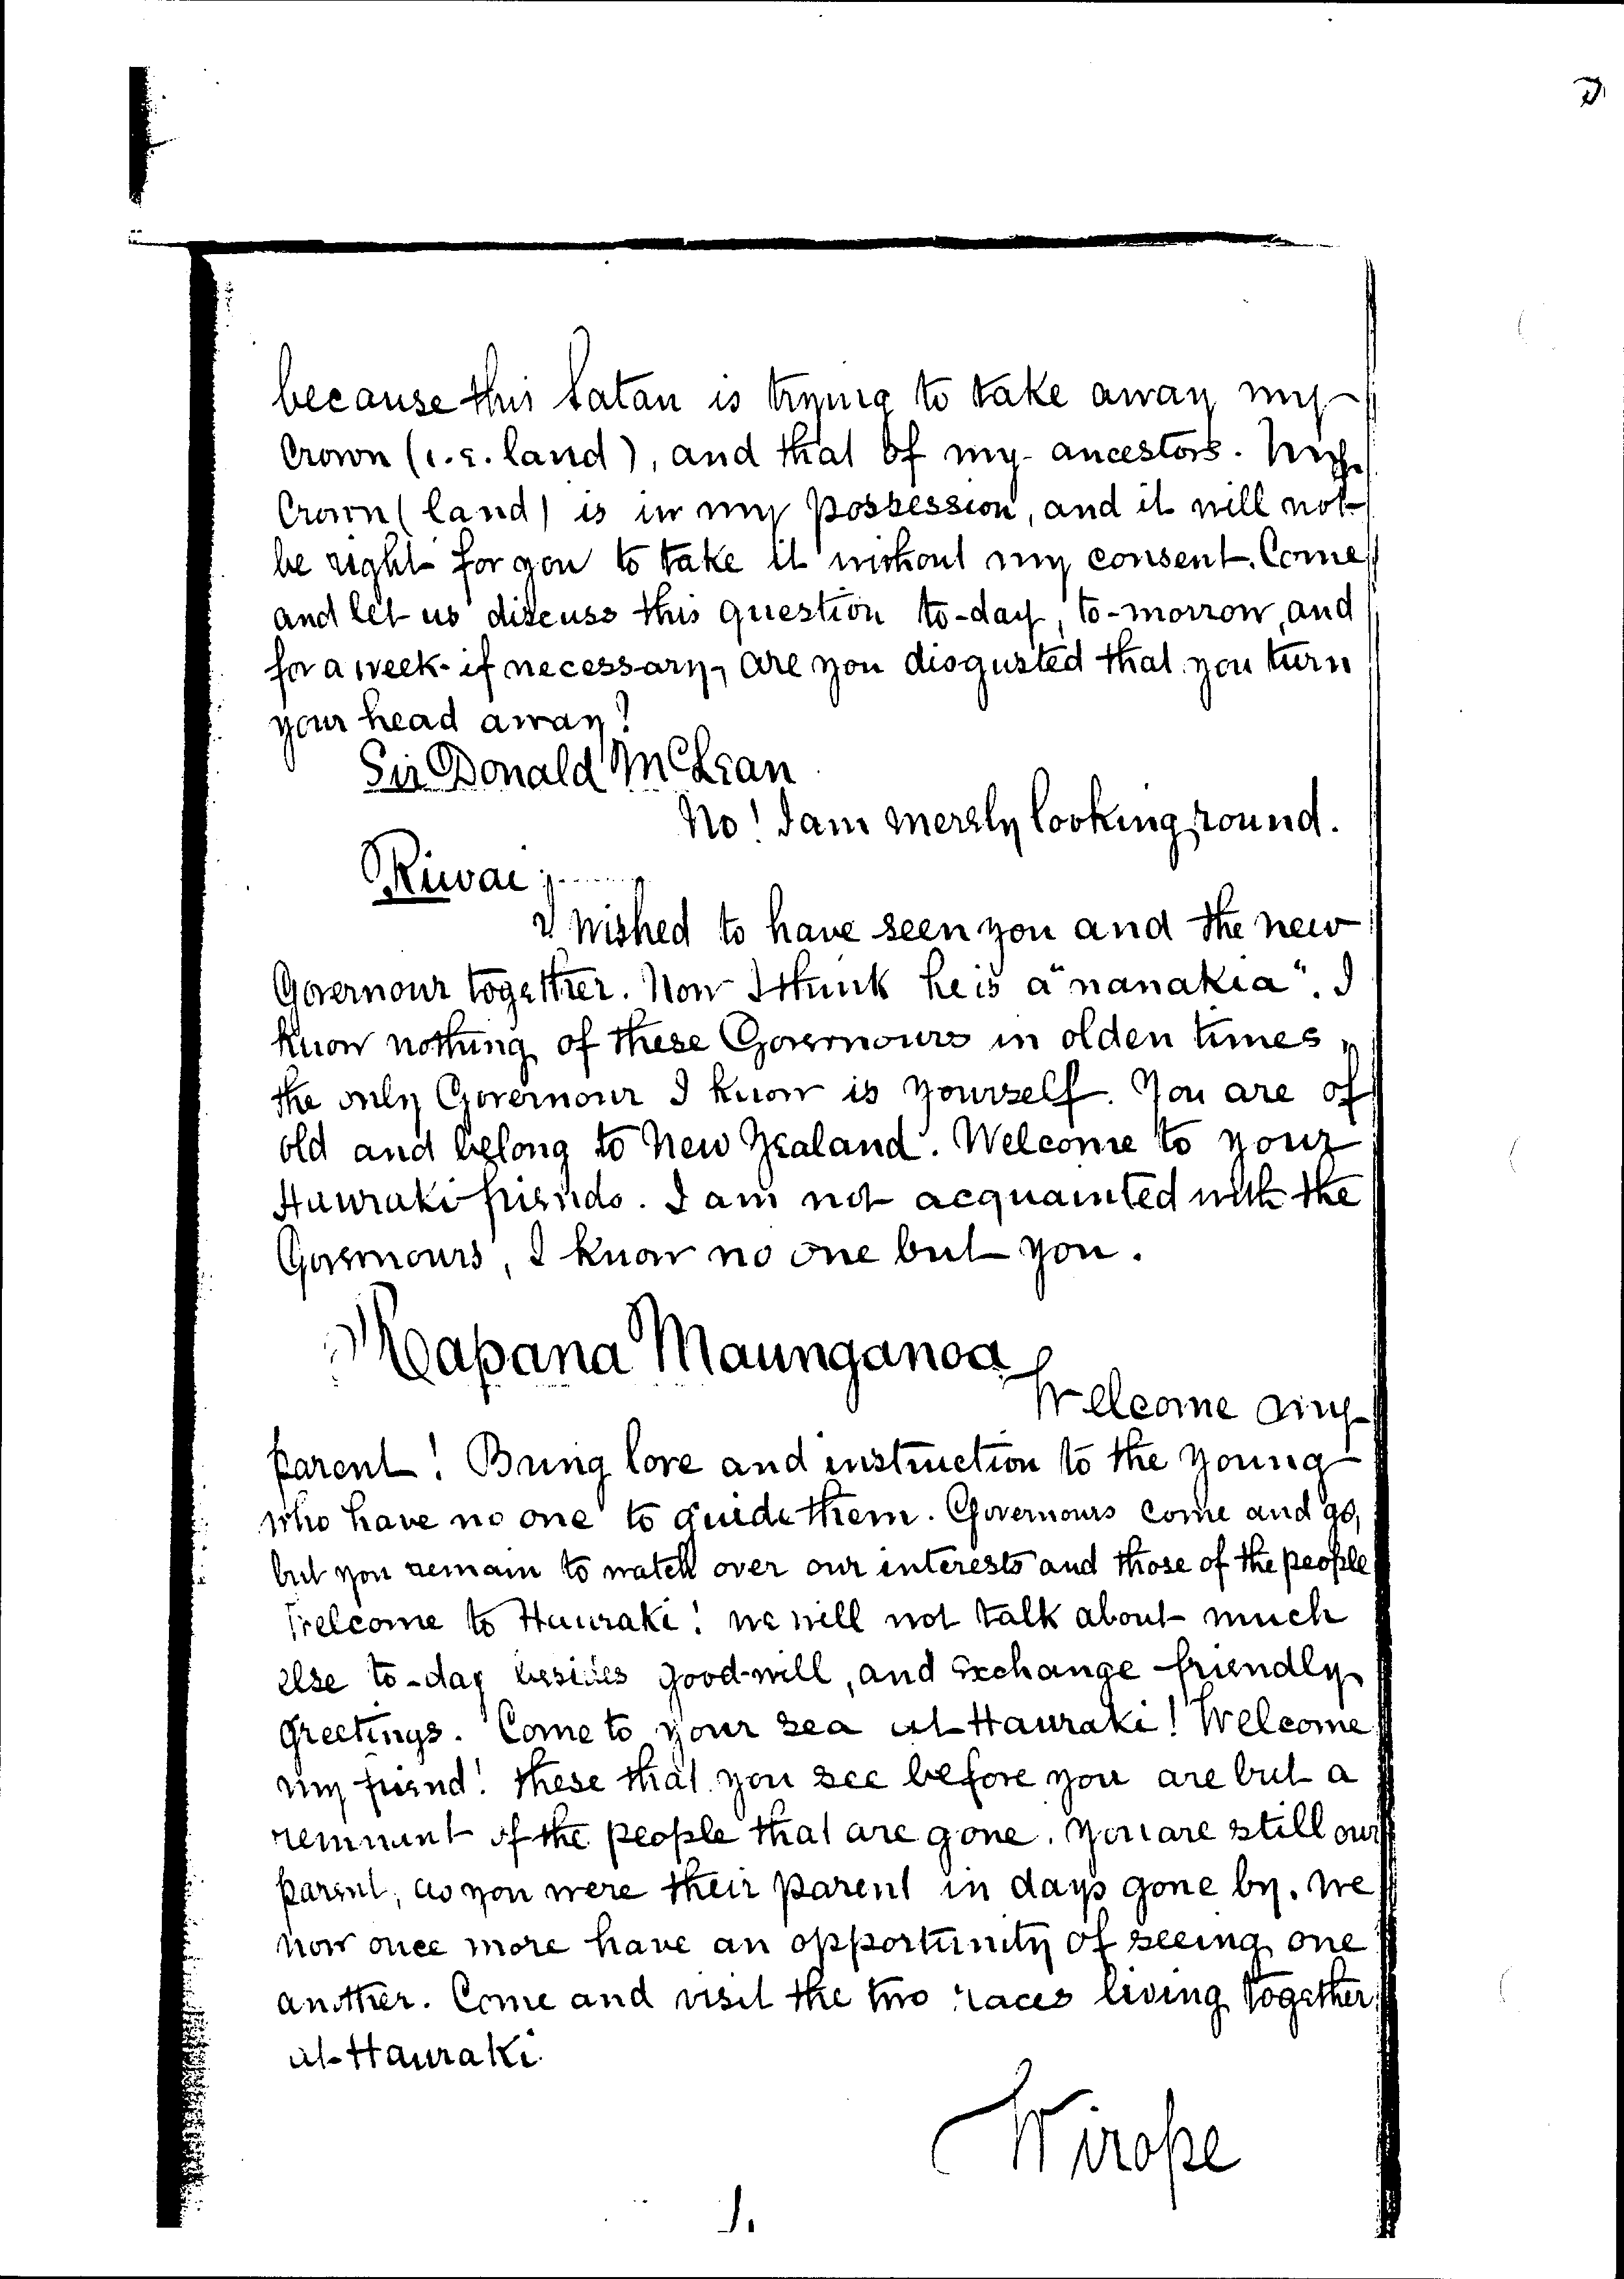 because this Satan is trying to take away my
Crown (i.e. land), and that of my ancestors. My
Crown (land) is in my possession, and it will not
be right for you to take it without my consent. Come
and let us discuss this question to-day, to-morrow, and
for a week if necessary, are you disgusted that you turn
your head away?
Sir Donald McLean
No! I am merely looking round.
Riwai;
I wished to have seen you and the new
Governour together. Now I think he is a "nanakia". I
know nothing of these Governours in olden times,
the only Governour I know is yourself. You are of
old and belong to New Zealand. Welcome to your
Hauraki friends. I am not acquainted with the
Governours, I know no one but you.
Hapana Maunganoa
Welcome my
parent! Bring love and instruction to the young
who have no one to guide them. Governours come and go,
but you remain to watch over our interests and those of the people
Welcome to Hauraki! We will not talk about much
else to-day besides good-will, and exchange friendly
greetings. Come to your sea at Hauraki! Welcome
my friend! these that you see before you are but a
remnant of the people that are gone. You are still our
parent, as you were their parent in days gone by. We
now once more have an opportunity of seeing one
another. Come and visit the two races living together
at Hauraki.
Wirope
1.